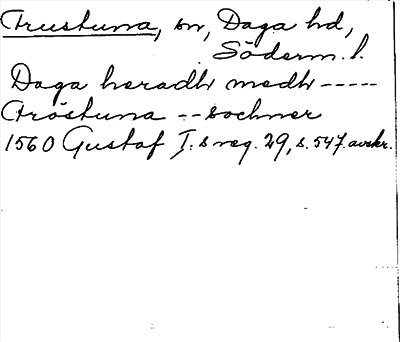 Frustuna, sn, Daga hd,
Söderm. l.
Daga heradh medh -----
Fröstuna -- sochner
1560 Gustaf I:s reg. 29, s. 547. avskr.